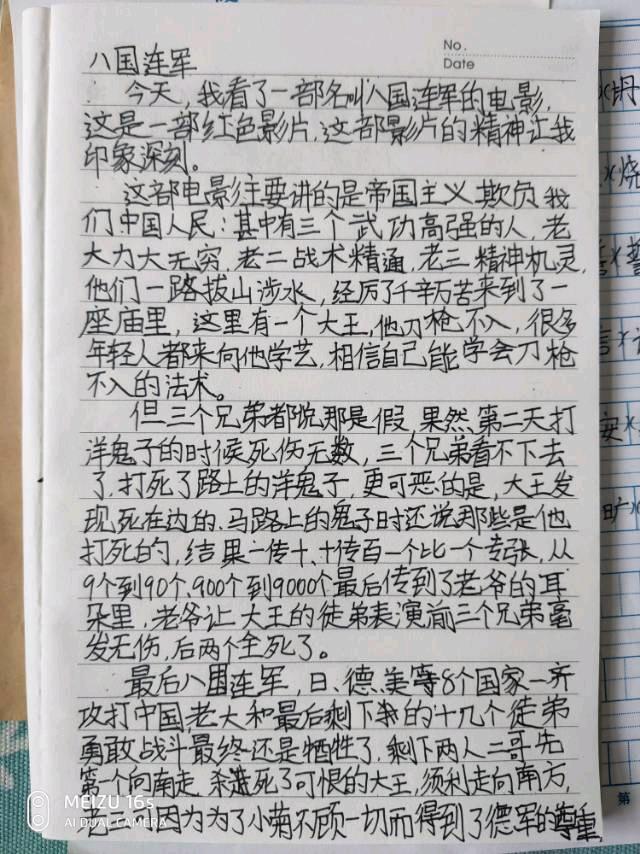 No.
Date
八国连军
今天,我看了一部名叫八国连军的电影,
这是一部红色影片,这部影片的精神让我
印象深刻。
这部电影主要讲的是帝国主义欺负我
们中国人民:其中有三个武功高强的人,老
大力大无穷,老二战术精通,老三精神机灵,
他们一路拔山涉水,经历了千辛万苦来到了一
座庙里,这里有一个大王,他刀枪不入,很多
年轻人都来向他学艺,相信自己能学会刀枪
不入的法术。
但三个兄弟都说那是假,果然,第二天打
洋鬼子的时候死伤无数,三个兄弟看不下去
了,打死了路上的洋鬼子,更可恶的是,大王发
现死在边的、马路上的鬼子时还说那些是他
打死的,结果一传十、十传百一个比一个夸张,从
9个到90个、900个到9000个最后传到了老爷的耳
朵里,老爷让大王的徒弟表演前三个兄弟毫
发无伤,后两个全死了。
最后八国连军,日、德、美等8个国家一齐
攻打中国,老大和最后剩下的十几个徒弟
勇敢战斗最终还是牺牲了,剩下两人二哥先
第一个向南走,杀死了可恨的大王,须利走向南方,
老 因为为了小菊不顾一切而得到了德军的尊重,
MEIZU 16s
AI DUAL CAMERA
第
烧